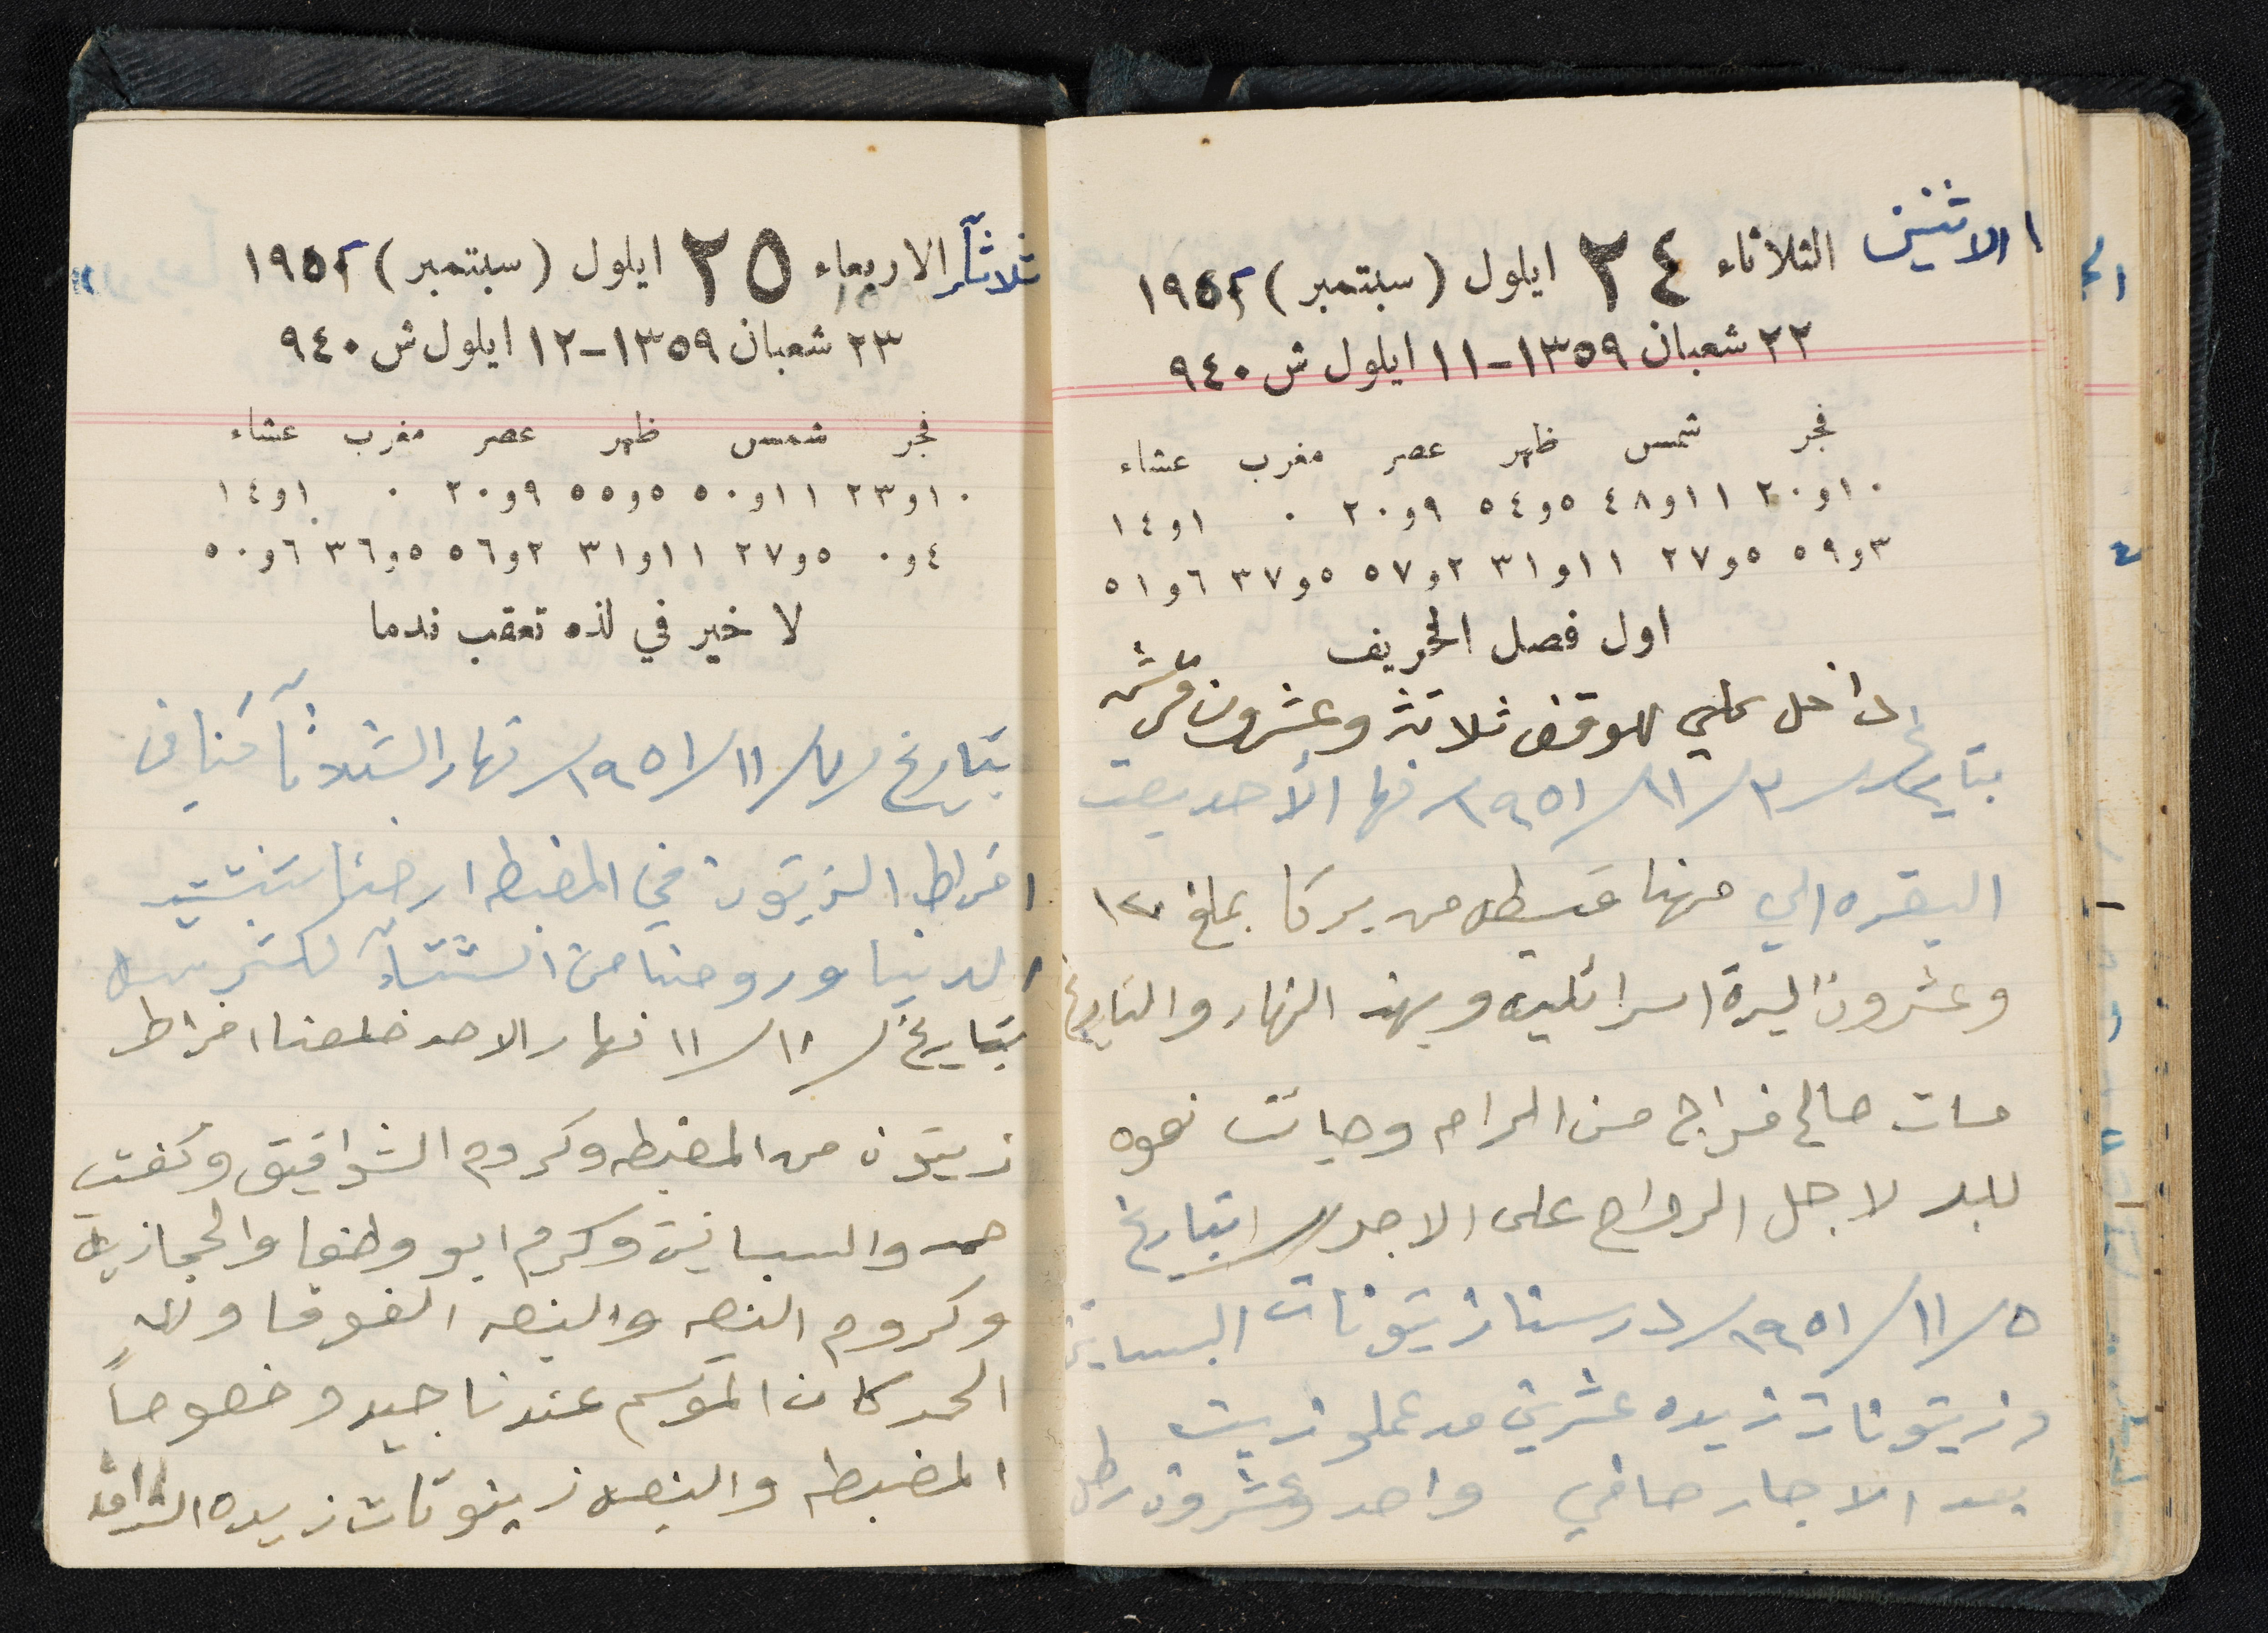 الاثنين الثلاثاء ٢٤ ايلول (سبتمبر) ١٩٥٢
٢٢ شعبان ١٣٥٩-١١ ايلول ش ٩٤٠
فجر شمس ظهر عصر مغرب عشاء
١٠و٢٠ ١١و٤٨ ٥و٥٤ ٩و٢٠ ٠ ١و١٤
٣و٥٩ ٥و٢٧ ١١و٣١ ٢و٥٧ ٥و٣٧ ٦و٥١
اول فصل الخريف
داخل علي للوقف ثلاثة وعشرون قرش
بتاريخ ١٩٥١/١١/٣ نهار الأحد بعت
البقره الي منها قسطل من يركا بملغ ١٢٠
وعشرون اليرة اسرائليه وبهذ النهار والتاريخ
مات صالح فراج من الرام وجائت نعوه
للبلد لاجل الرواح على الاجر ابتاريخ
١٩٥١/١١/٥ درسنا زيتونات البساتين
وزيتونات زيده عشرين مد عملو زيت
بعد الاجار صافي واحد وعشرون رطل
ثلاثآء الاربعاء ٢٥ ايلول (سبتمبر) ١٩٥٢
٢٣ شعبان ١٣٥٩-١٢ ايلول ش ٩٤٠
فجر شمس ظهر عصر مغرب عشاء
١٠و٢٣ ١١و٥٠ ٥و٥٥ ٩و٢٠ ٠ ١و١٤
٤و٠ ٥و٢٧ ١١و٣١ ٢و٥٦ ٥و٣٦ ٦و٥٠
لا خير في لذه تعقب ندما
بتاريخ ١٩٥١/١١/ نهار الثلاثآ كنا في
افراط الزيتون في المضبطه ارضنا
الدنيا وروحنا من الشتآء
بتاريخ ١١/١١ نهار الاحد خلصنا افراط
زيتون من المضبطه وكروم الشواقيق وكفت
حمد والبساتين وكرم ابو وطفا والحجازيه
وكروم النصه والنصه الفوقا ولله
الحمد كان الموسم عندنا جيد وخصوصاً
المضبطه والنصه زيتونات زيده